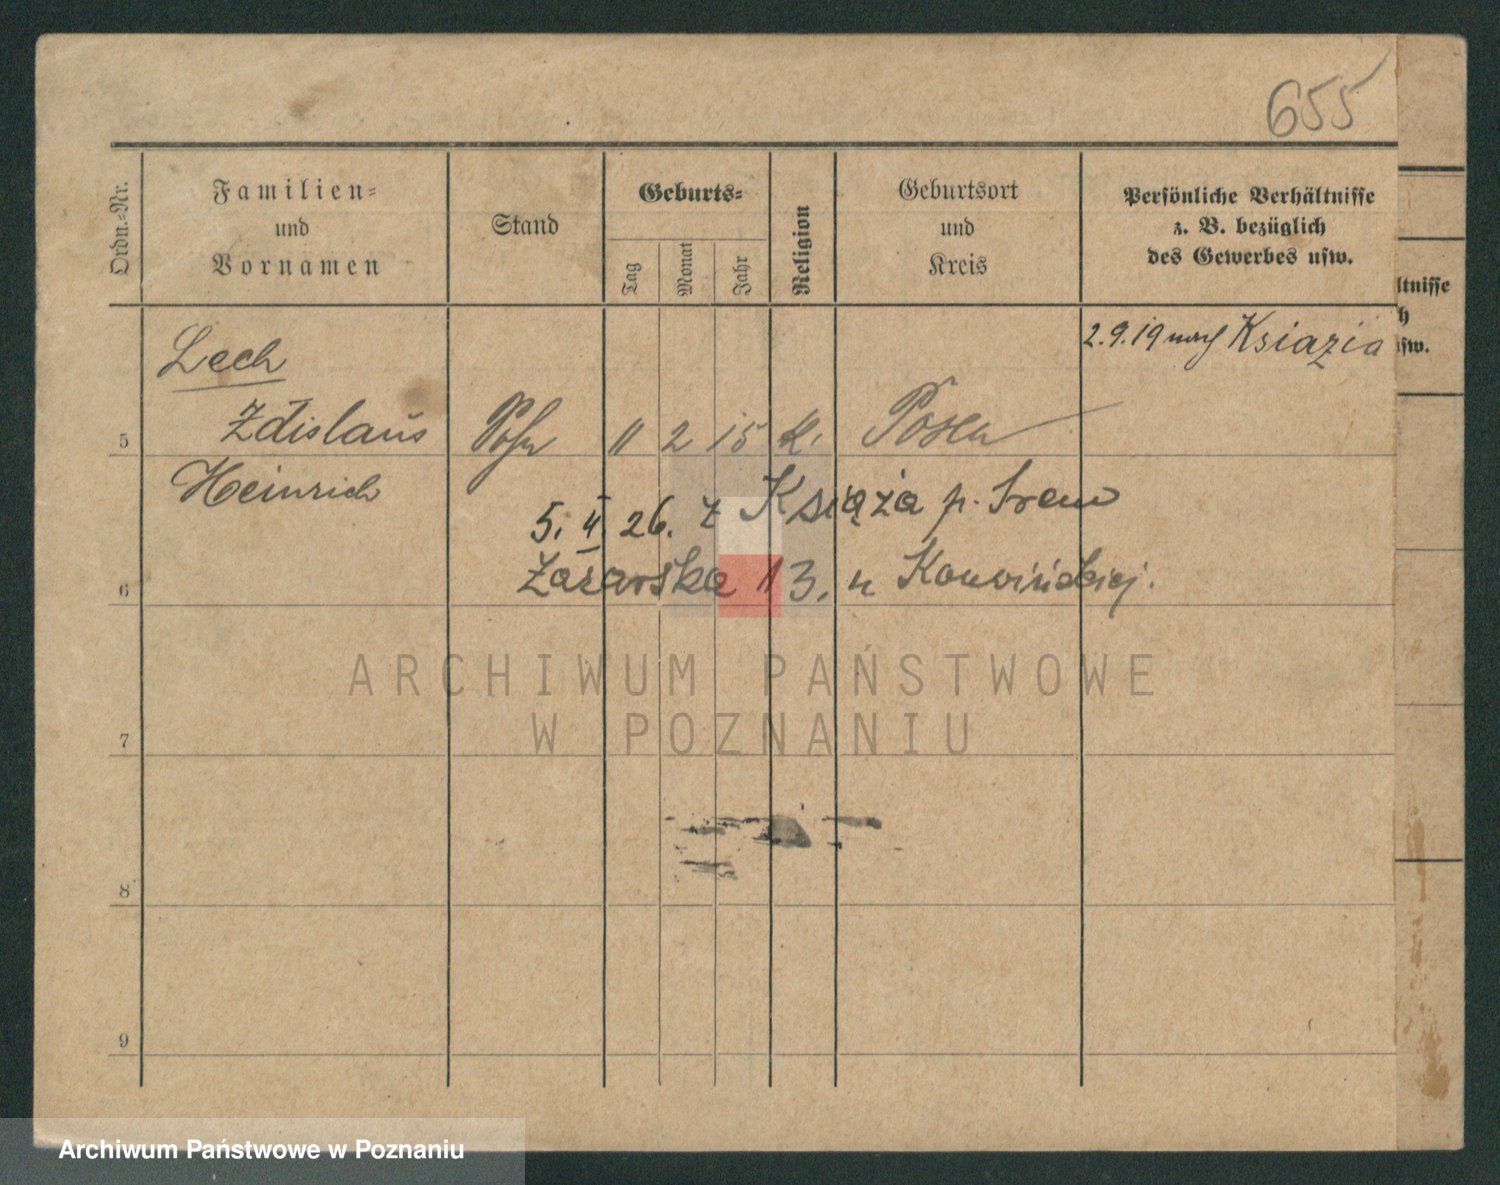 655
Ordn.-Nr.
Familien-
und
Vornamen
Stand
Geburts-
Tag
Monat
Jahr
Religion
Geburtsort
und
Kreis
Persönliche Verhältnisse
z. B. bezüglich
des Gewerbes usw.
ltnisse
h
usw.
2.9.19 nach Ksiazia
Lech
5 Zdislaus Sohn 11 2 15 k. Posen
Heinrich
5. II. 26. z Książa p. Śrem
6 13, u
7
8
9
ARCHIWUM PAŃSTWOWE
W POZNANIU
Archiwum Państwowe w Poznaniu